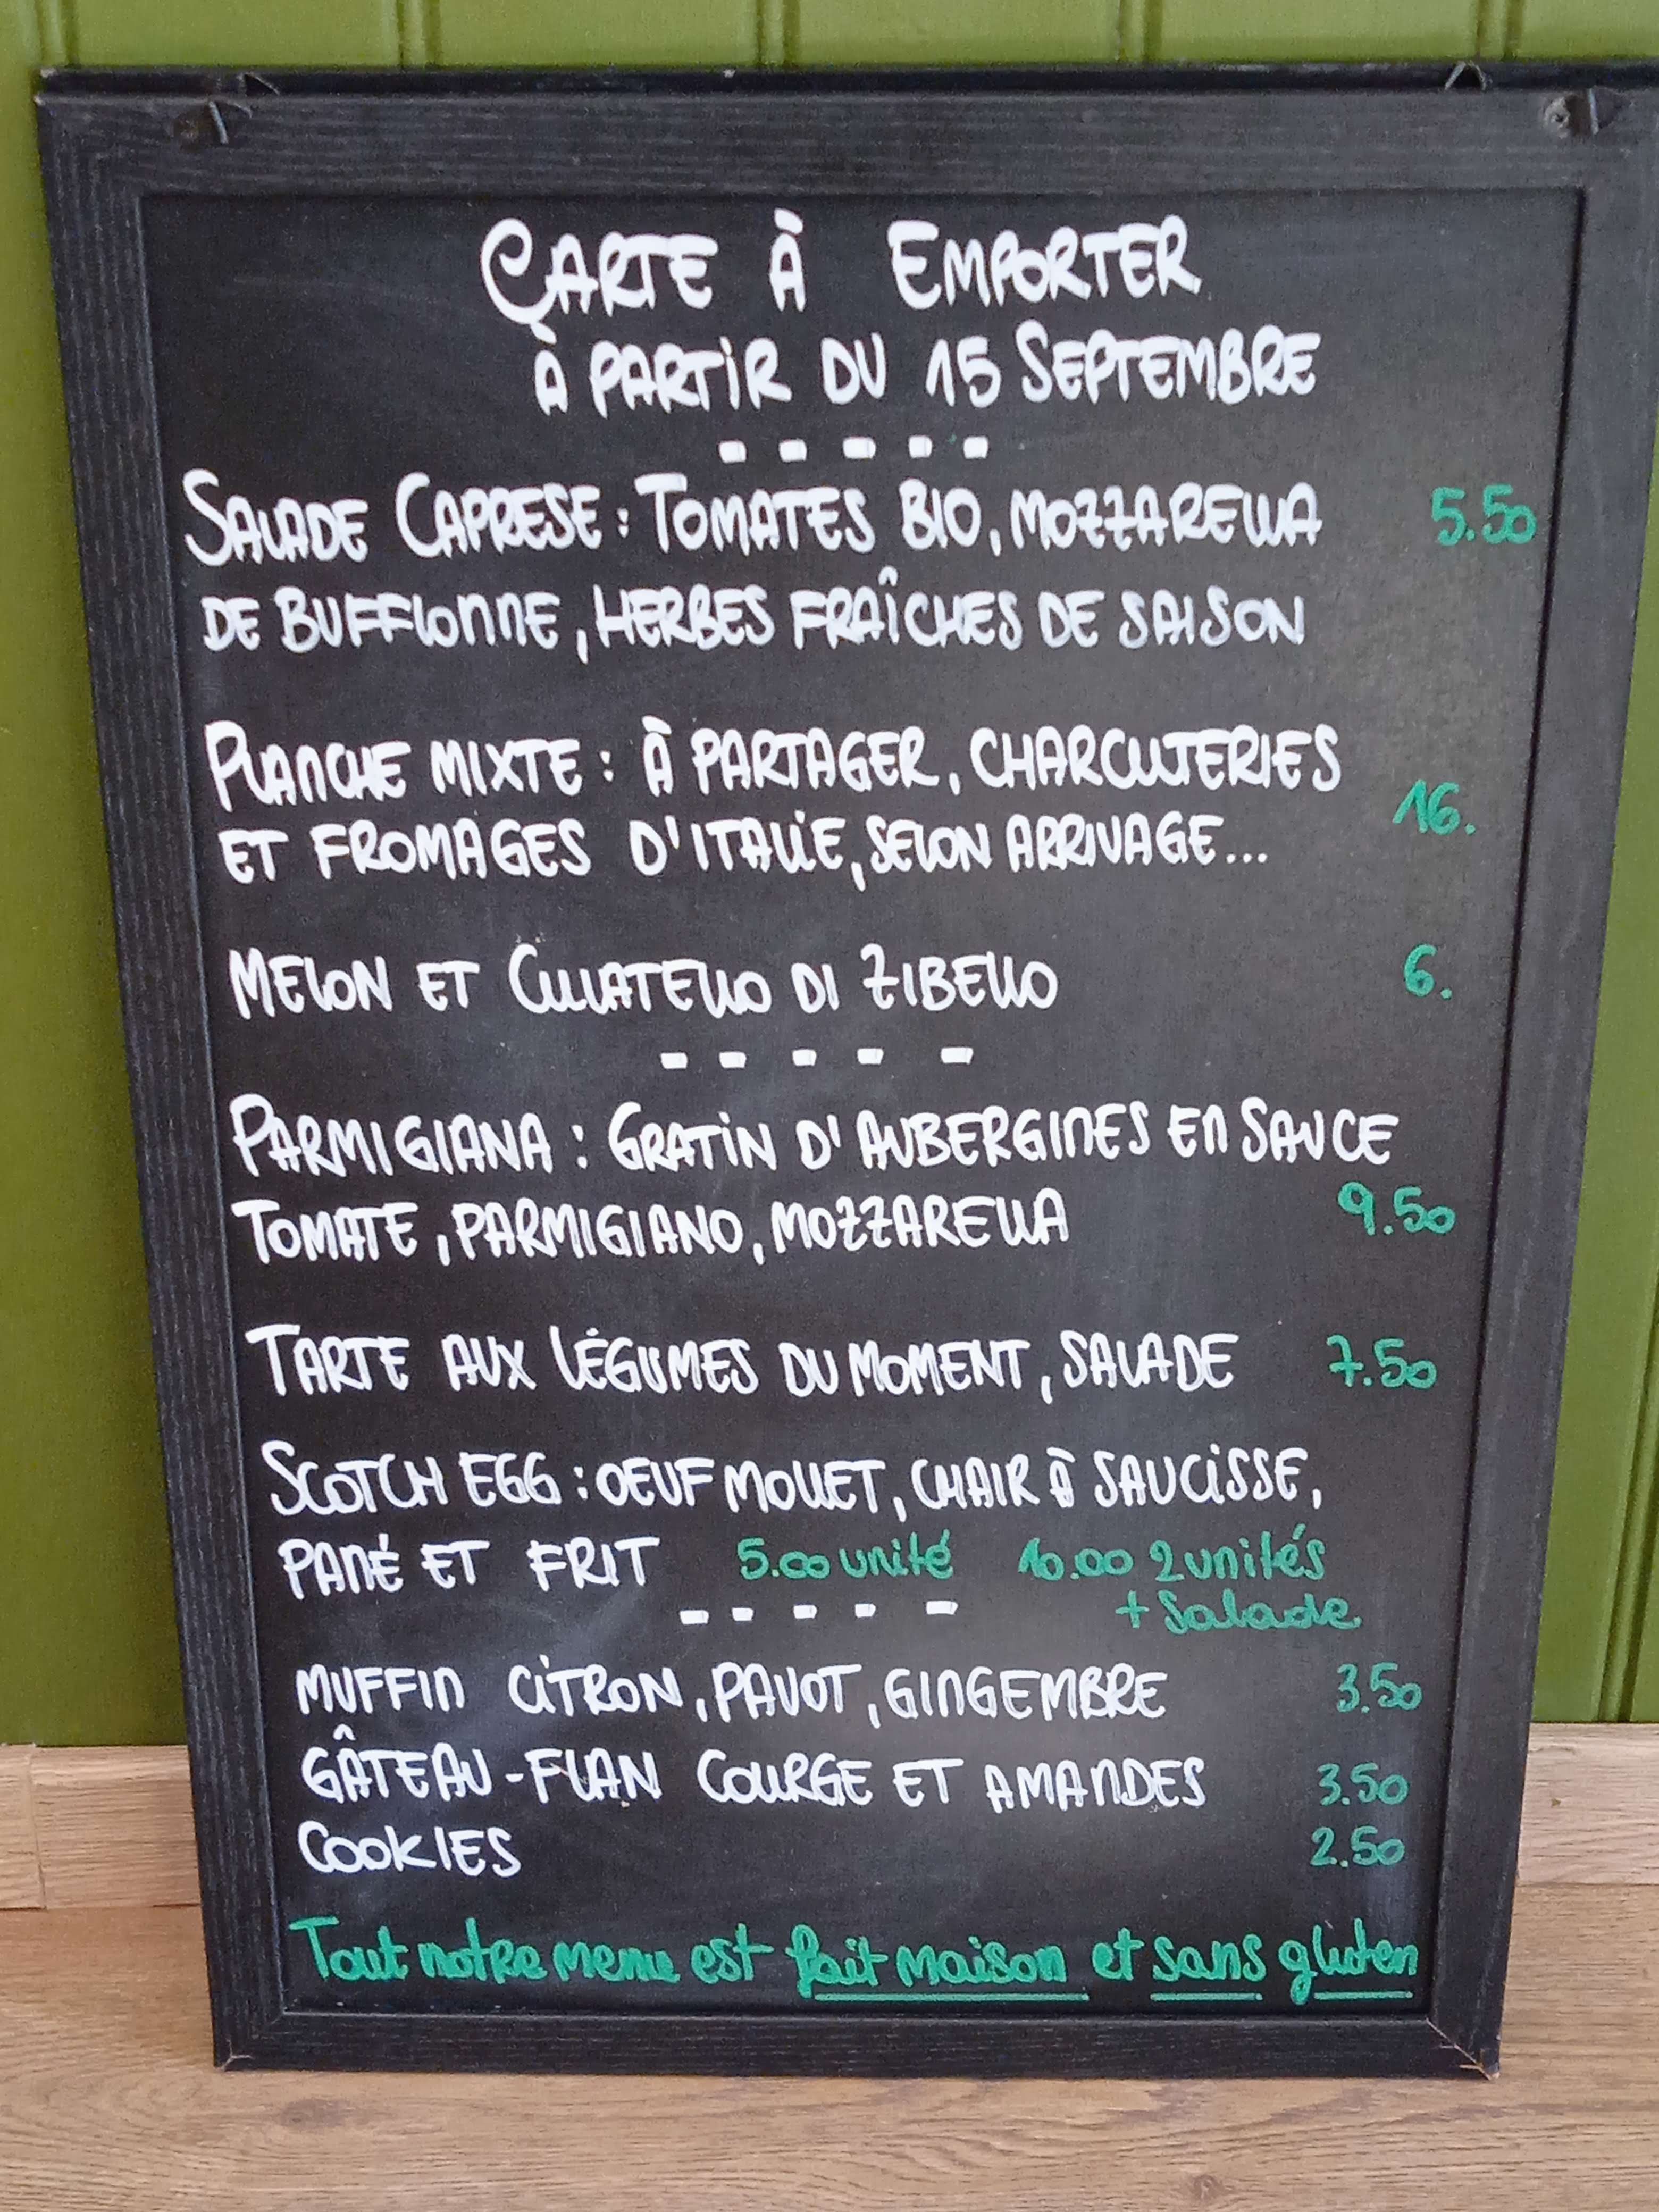 CARTE À EMPORTER
À PARTIR DU 15 SEPTEMBRE
- - - - -
SALADE CAPRESE : TOMATES BIO, MOZZARELLA 5.50
DE BUFFLONNE, HERBES FRAÎCHES DE SAISON
PLANCHE MIXTE : À PARTAGER, CHARCUTERIES
ET FROMAGES D'ITALIE, SELON ARRIVAGE... 16.
MELON ET CULLATELLO DI ZIBELLO 6.
- - - - -
PARMIGIANA : GRATIN D'AUBERGINES EN SAUCE
TOMATE, PARMIGIANO, MOZZARELLA 9.50
TARTE AUX LÉGUMES DU MOMENT, SALADE 7.50
SCOTCH EGG : OEUF MOLLET, CHAIR À SAUCISSE,
PANÉ ET FRIT 5.00 unité 10.00 2 unités
+ Salade
- - - - -
MUFFIN CITRON, PAVOT, GINGEMBRE 3.50
GÂTEAU-FLAN COURGE ET AMANDES 3.50
COOKIES 2.50
Tout notre menu est fait maison et sans gluten